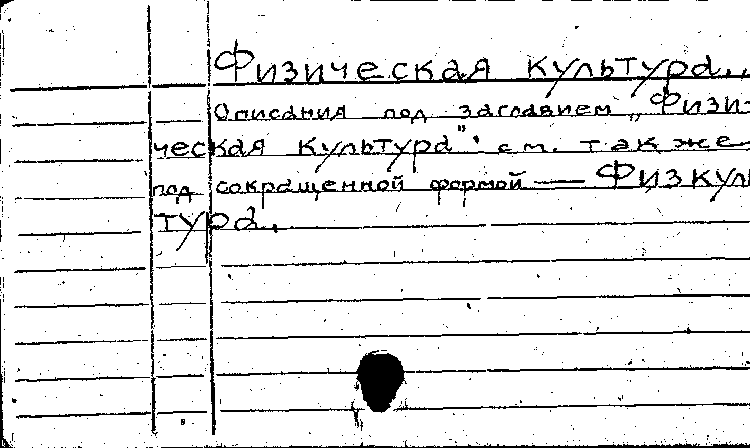 Физическая культура..
Описания под заглавием „Физи-
ческая культура" см. также
под сокращенной формой — Физкуль
тура.